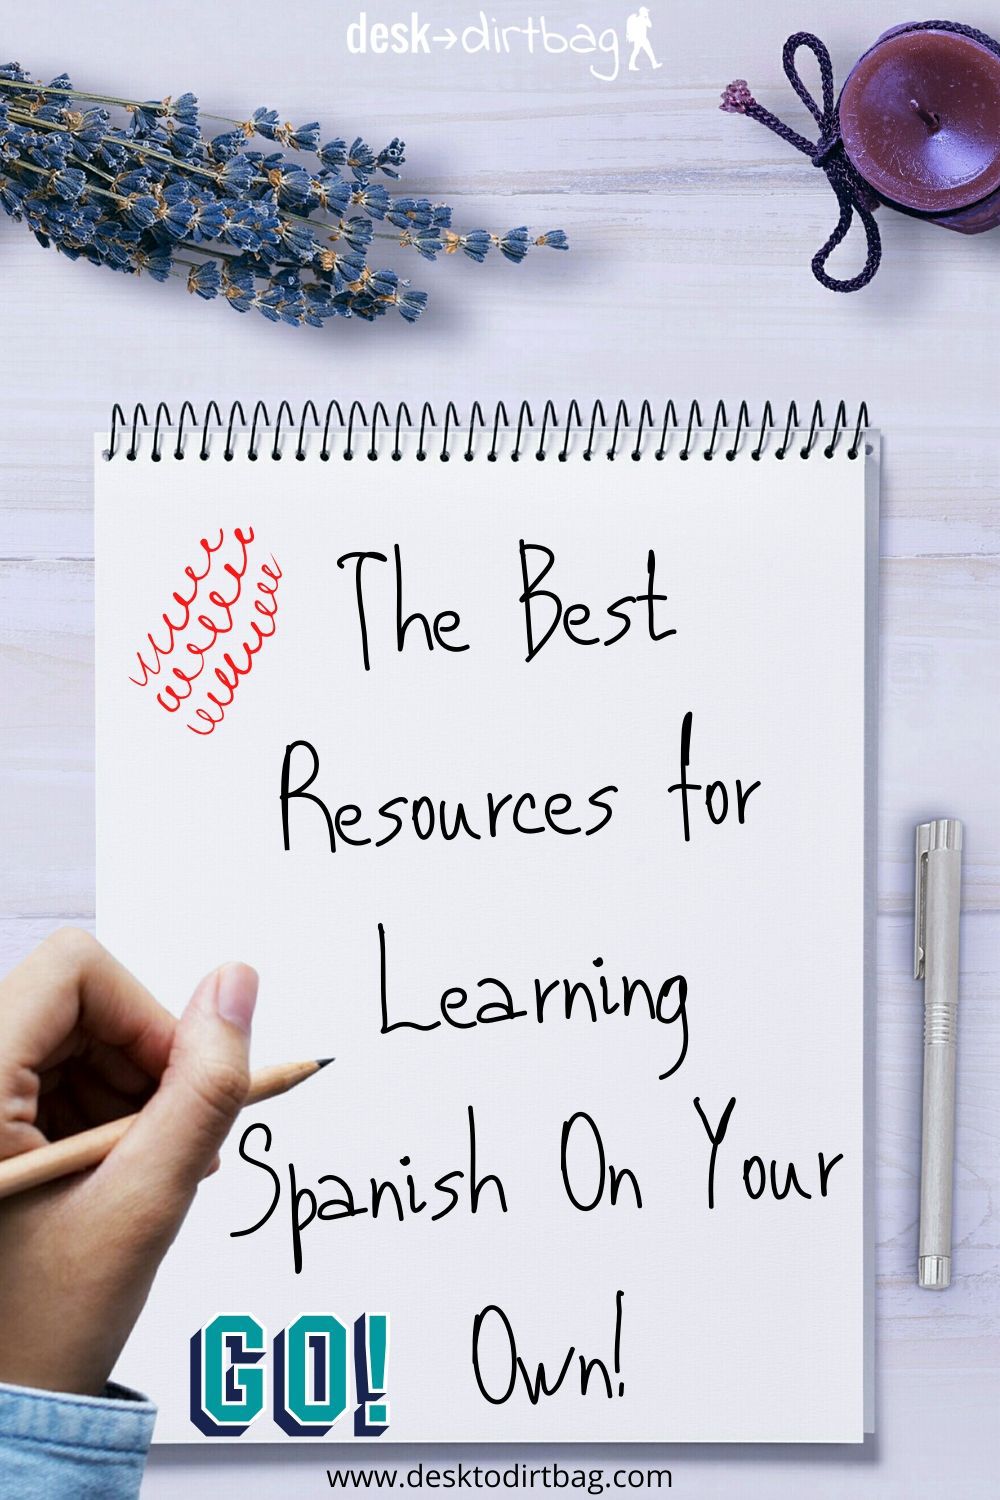 desk→dirtbag
The Best
Resources for
Learning
Spanish On Your
Own!
GO!
www.desktodirtbag.com